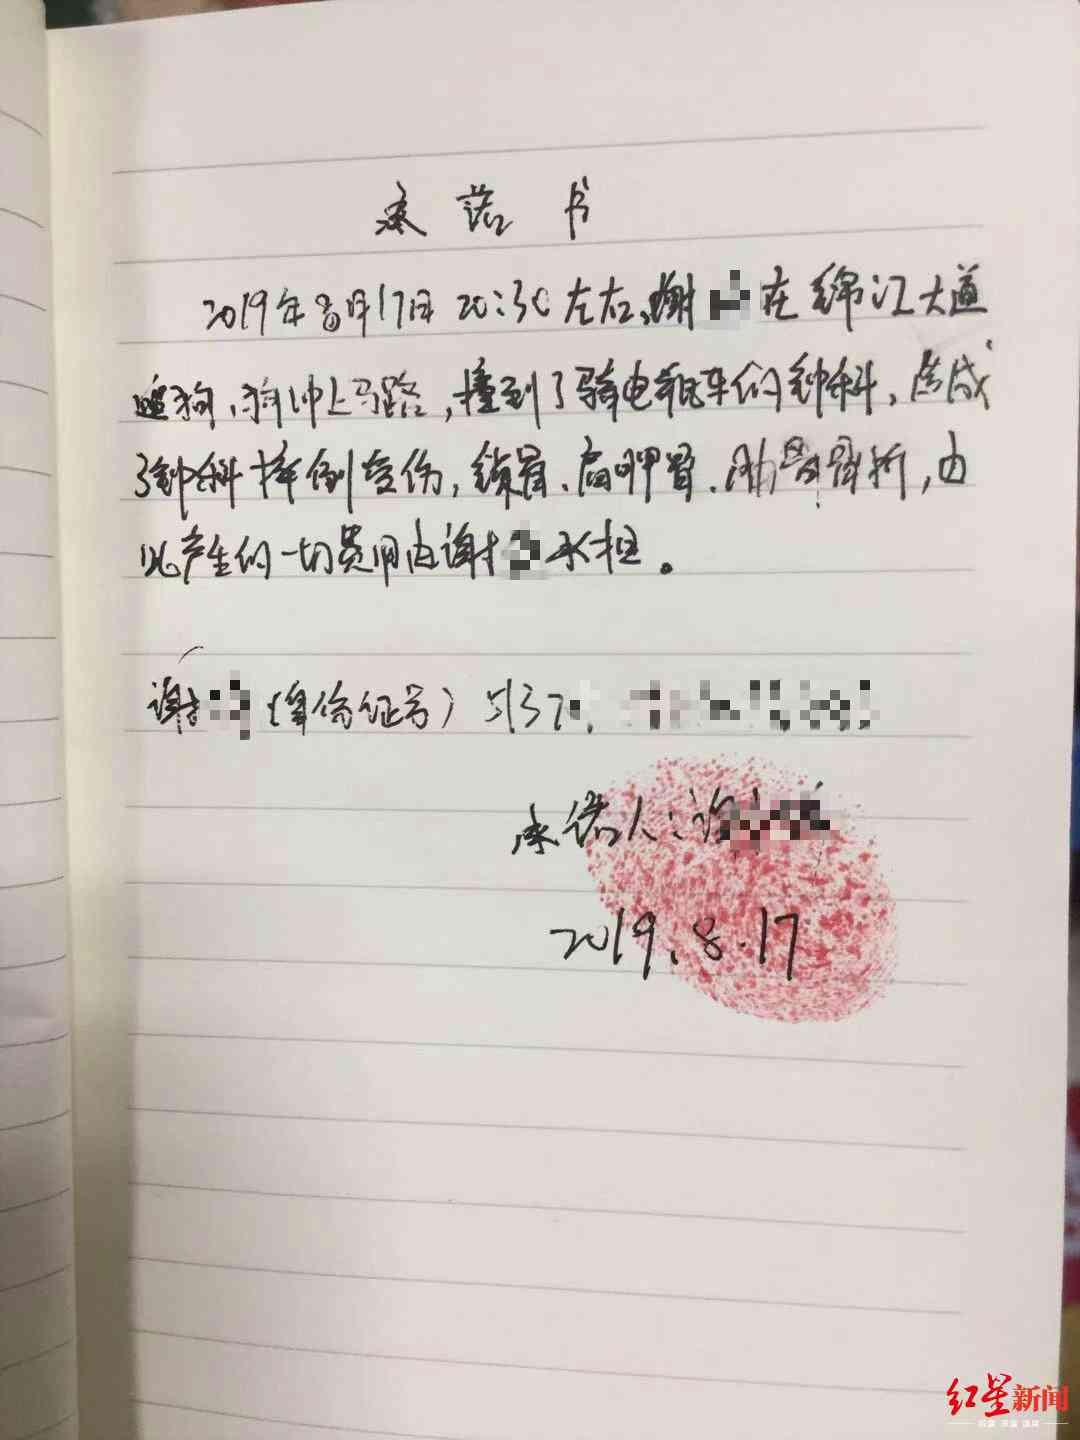 承诺书
2019年8月17日20:30左右,谢在锦江大道
遛狗,狗冲上马路,撞到了骑电瓶车的钟科,造成
了钟科摔倒受伤,锁骨、肩胛骨、肋骨骨折,由
此产生的一切费用由谢承担。
谢(身份证号)5137
承诺人:谢
2019.8.17
红星新闻